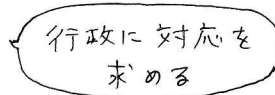 行政に対応を
求める